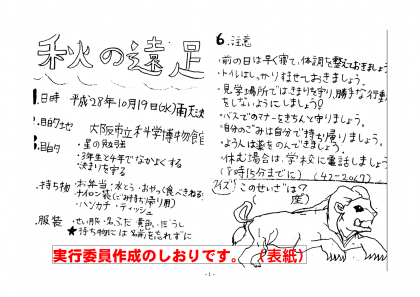 秋の遠足
1.日時 平成28年10月19日(水)雨天決
2.目的地 大阪市立科学博物館
3.目的 ・星の勉強
・3年生と4年でなかよくする
・決まりを守る
.持ち物 ・お弁当・水とう・おやつ(食べきれる
ナイロン袋(ごみ持ち帰り用)
・ハンカチ・ティッシュ
.服装 ・せい服・名ふだ・黄色いぼうし
★持ち物には名前を忘れずに
6.注意
・前の日は早く寝て、体調を整えておきましょう
・トイレはしっかりすませておきましょう。
・見学場所ではきまりを守り、勝手な行動
をしないようにしましょう!
・バスでのマナーをきちんと守りましょう。
・自分のごみは自分で持ち帰りましょう。
・ようく人は薬をのんできましょう。
・休む場合は、学校に電話しましょう
(8時15分までに) (42-2069)
クイズ このせいざは?
( 座)
実行委員作成のしおりです。 (表紙)
- 1 -